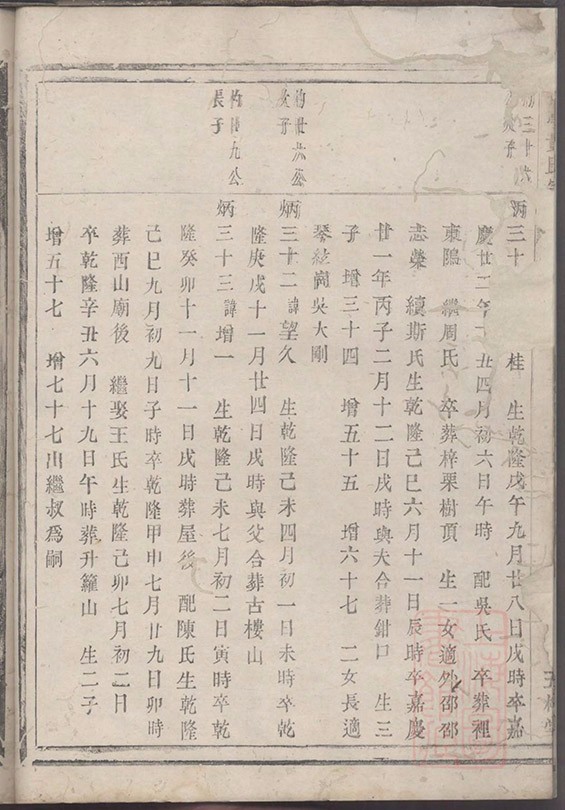 炳三十 桂 生乾隆戊午九月廿八日戌時卒嘉
慶廿二年 丑四月初六日午時 配吳氏 卒葬裡
東隖 繼周氏 卒葬梓栗樹頂 生一女適外邵邵
志榮 續斯氏生乾隆己巳六月十一日辰時卒嘉慶
廿一年丙子二月十二日戌時與夫合葬鉗口 生三
子 增三十四 增五十五 增六十七 二女長適
琴絃崗吳大剛
杓廿六公
次子
炳三十二 諱望久 生乾隆己未四月初一日未時卒乾
隆庚戌十一月廿四日戌時與父合葬古樓山
九公
長子
炳三十三 諱增一 生乾隆己未七月初二日寅時卒乾
隆癸卯十一月十一日戌時葬屋後 配陳氏生乾隆
己巳九月初九日子時卒乾隆甲申七月廿九日卯時
葬西山廟後 繼娶王氏生乾隆己卯七月初二日
卒乾隆辛丑六月十九日午時葬升籮山 生二子
增五十七 增七十七出繼叔爲嗣